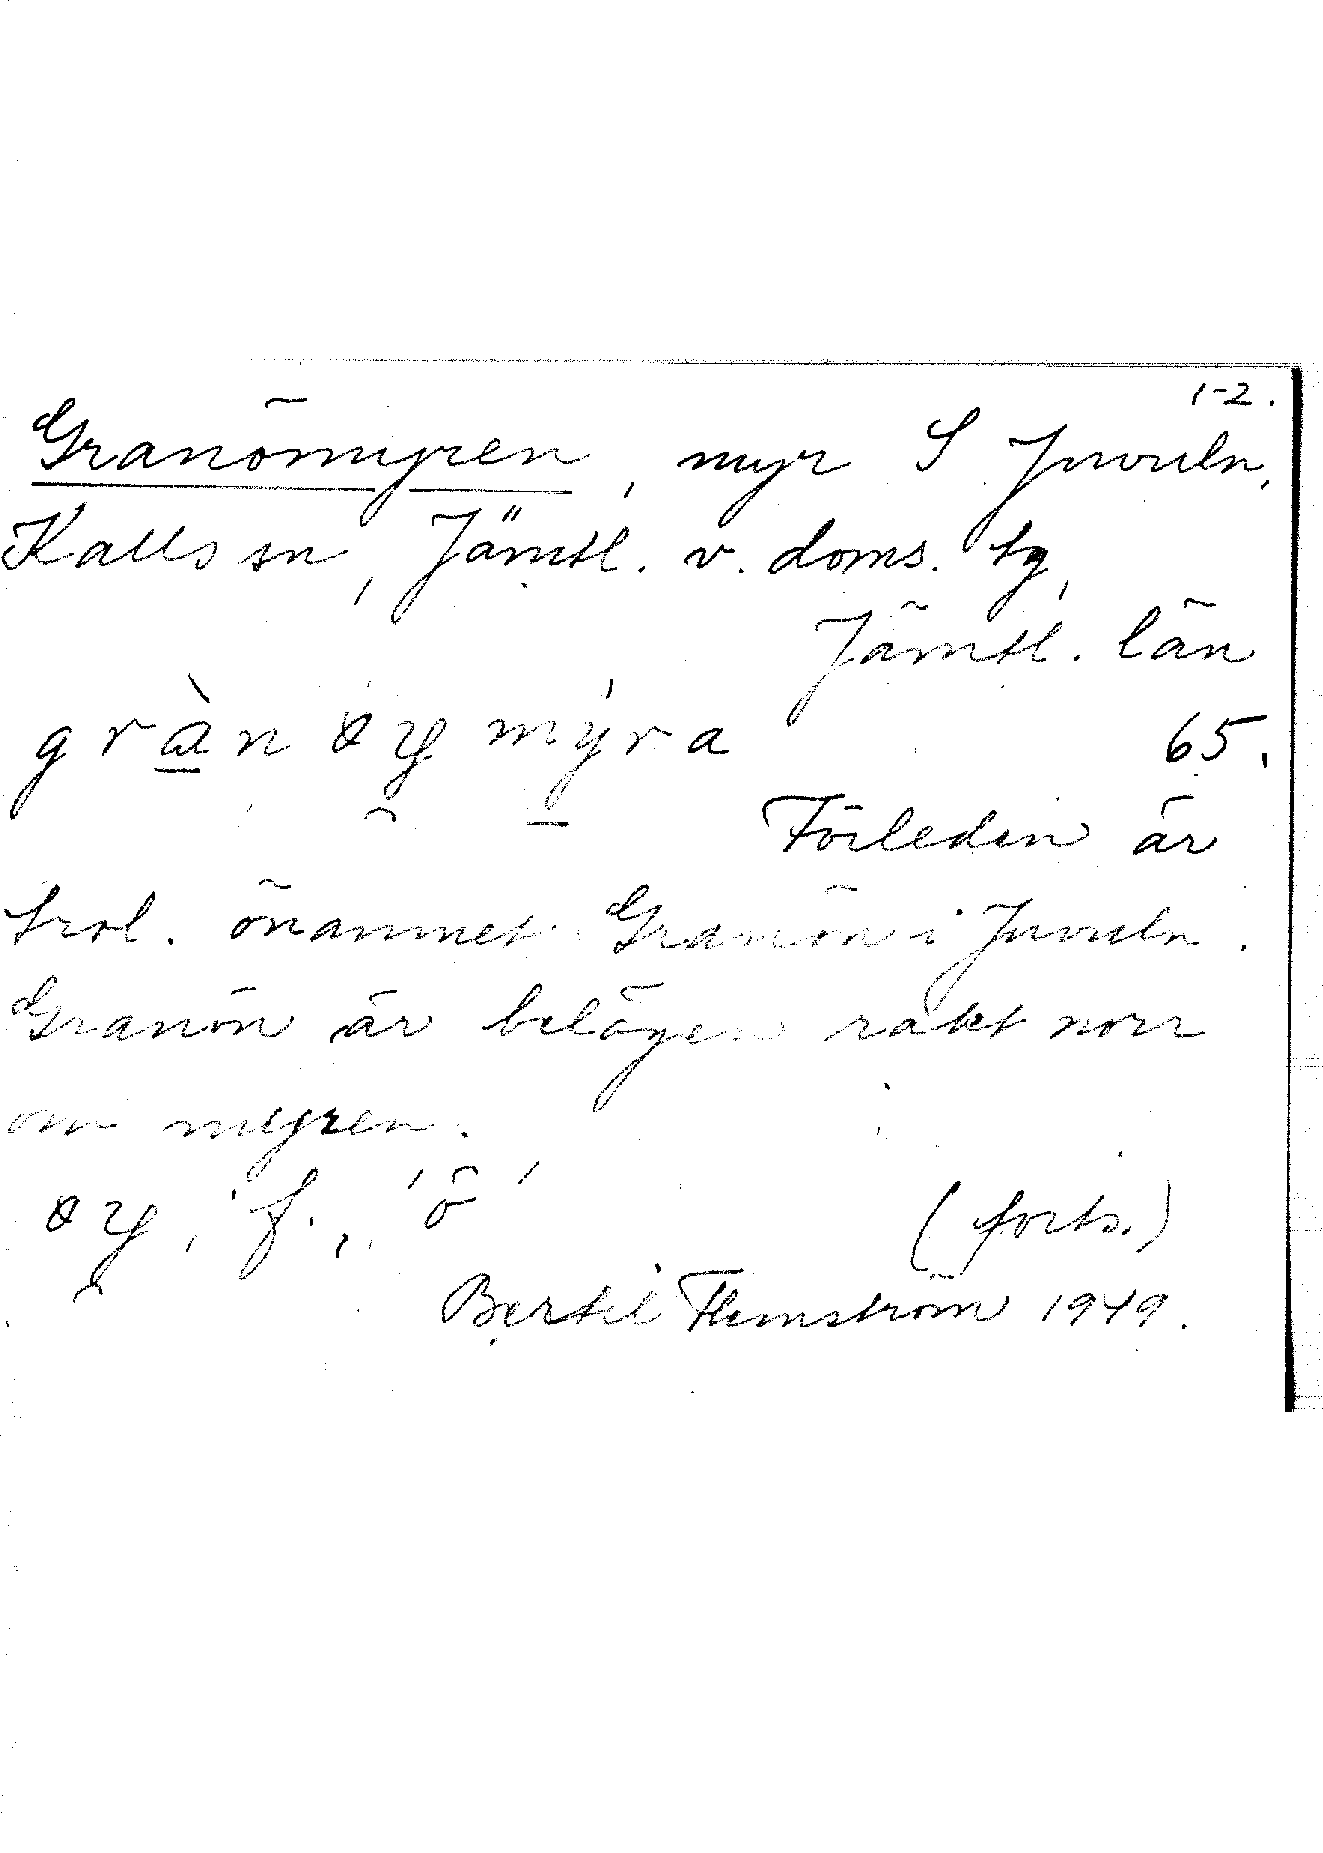 1-2.
Granömyren, myr S Juvuln,
Kalls sn, Jämtl. v. doms. tg,
Jämtl. län
65.
Förleden är
trol. önamnet Granön i Juvuln.
Granön är belägen rakt norr
om myren.
f., 'ö'
(forts.)
Bertil Flemström 1949.